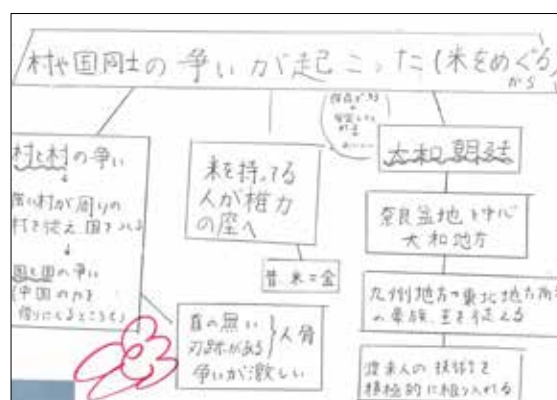 村や国同士の争いが起こった(米をめぐる)
から
村と村の争い
強い村が周りの
村を従え、国をつくる
国と国の争い
(中国の力を
借りにくるところも)
米を持ってる
人が権力
の座へ
昔 米=金
首の無い
刃跡がある
人骨
争いが激しい
大和朝廷
奈良盆地を中心
大和地方
九州地方〜東北地方南
の豪族、王を従える
渡来人の技術を
積極的に取り入れる